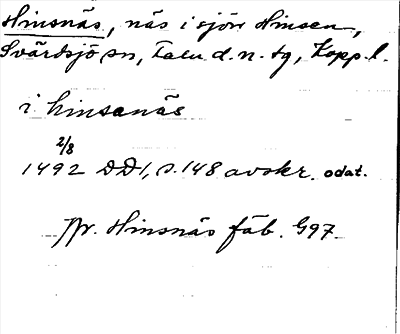 Hinsnäs, näs i sjön Hinsen,
Svärdsjö sn, Falu d. n. tg, Kopp. l.
i hinsanäs
2/8
1492 DD1, s. 148 avskr. odat.
Hinsnäs fäb. G97